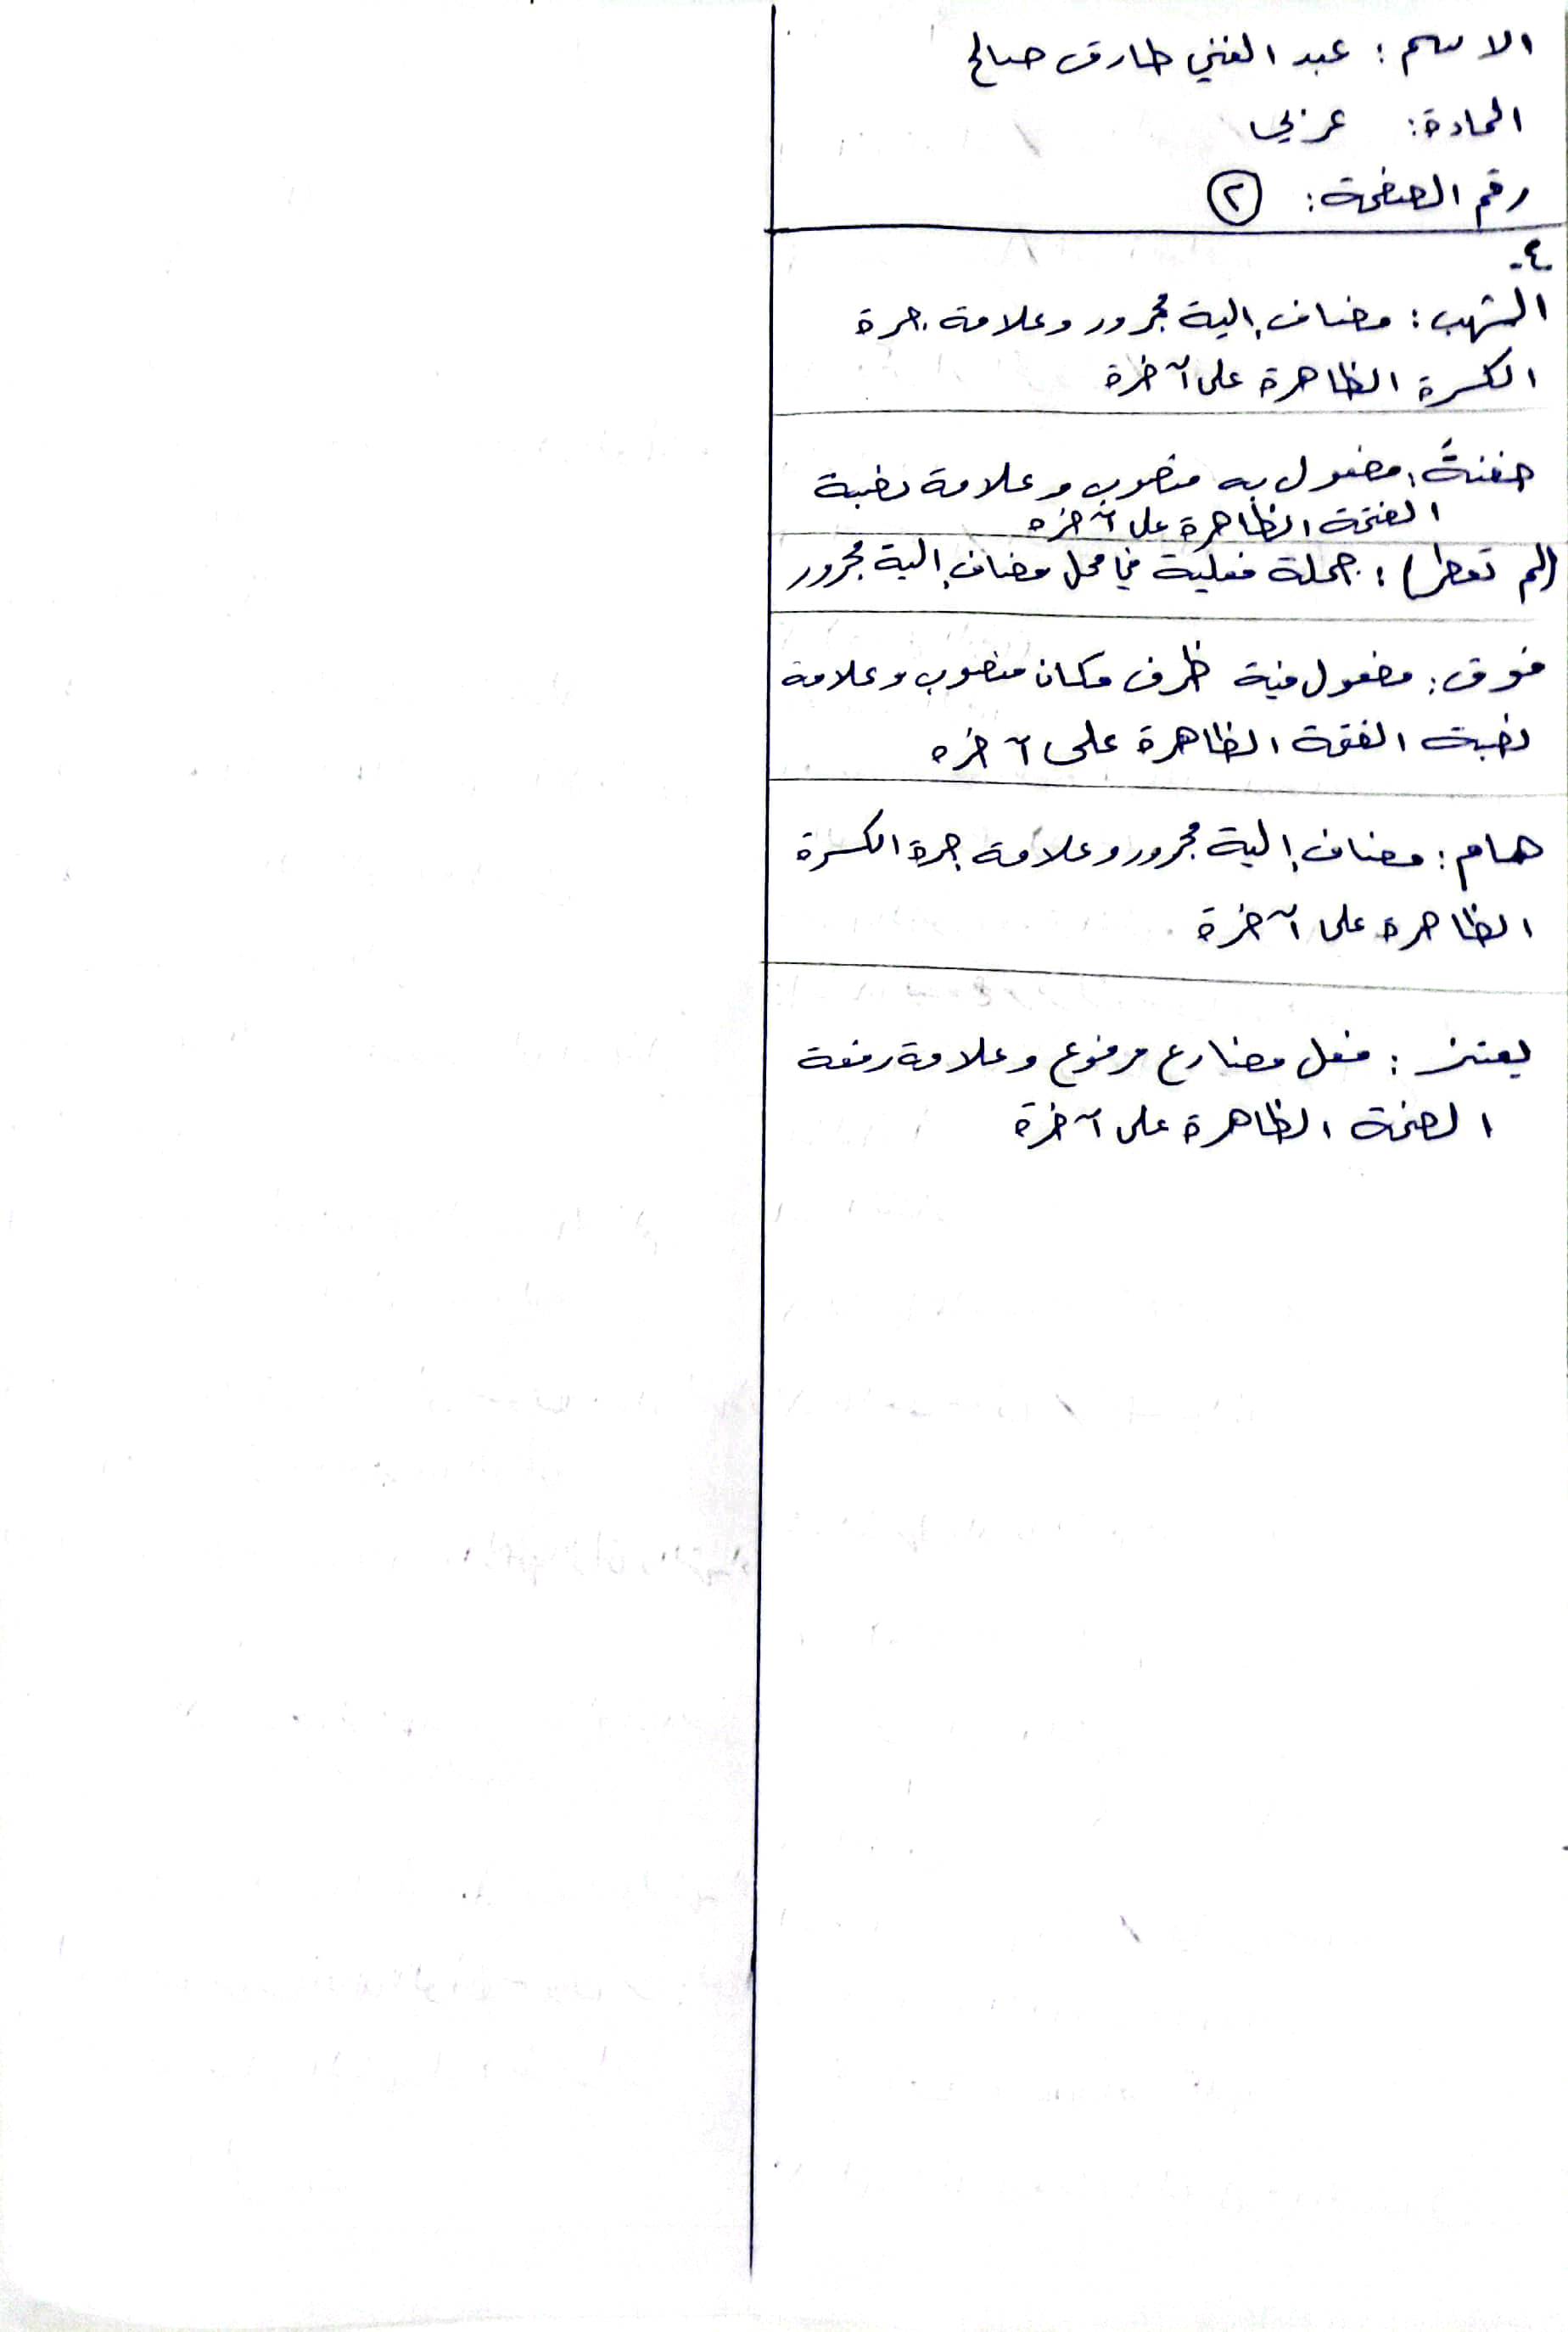 الاسم : عبد الغني طارق صالح
المادة: عربي
رقم الصفحة: ٢
٤-
الشهب : مضاف إلية مجرور وعلامة جرة
الكسرة الظاهرة على آخرة
حفنةً: مفعول به منصوب وعلامة نصبة
الفتحة الظاهرة على آخره
(لم تعطر) : جملة فعلية في محل مضاف إلية مجرور
فوق: مفعول فية ظرف مكان منصوب وعلامة
نصبة الفتحة الظاهرة على آخره
همام : مضاف إلية مجرور وعلامة جرة الكسرة
الظاهرة على آخرة
يعتز : فعل مضارع مرفوع وعلامة رفعة
الضمة الظاهرة على آخرة